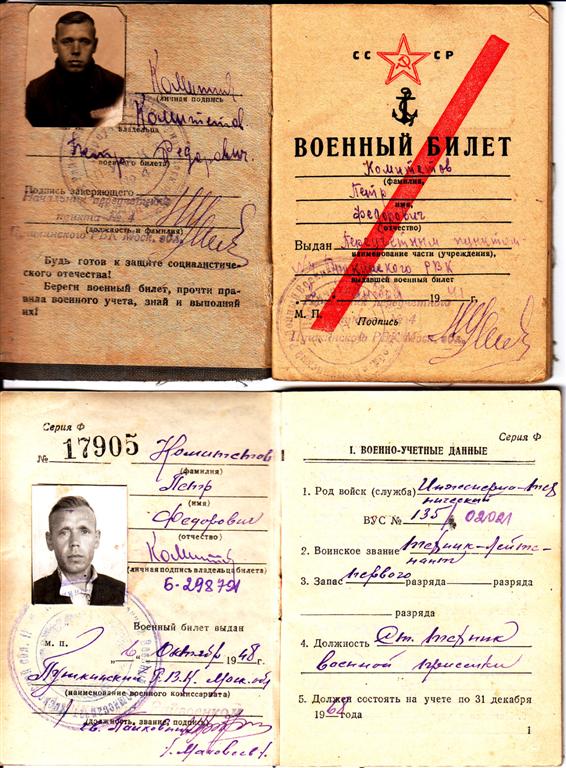 Комитетов
(личная подпись
Комитетов
владельца
Петр Федорович.
военного билета)
Подпись заверяющего
Начальник переучетного
пункта № 4
Пушкинского РВК Моск. обл.
(должность и фамилия)
Будь готов к защите социалистиче-
ского отечества!
Береги военный билет, прочти пра-
вила военного учета, знай и выполняй
их!
СС СР
ВОЕННЫЙ БИЛЕТ
Комитетов
(фамилия,
Петр
имя,
Федорович
(отчество)
Выдан Переучетным пунктом
наименование части (учреждения),
№4 Пушкинского РВК
выдавшей военный билет
19 41 г.
М. П. Подпись
Начальник переучетного
пункта № 4
Пушкинского РВК Моск. обл.
Серия Ф
№ 17905
Комитетов
(фамилия)
Петр
(имя)
Федорович
(отчество)
(личная подпись владельца билета)
Б-298791
Военный билет выдан
м. п. „6" Октября 1948 г.
Пушкинский Р.В.К. Моск. обл
(наименование военного комиссариата)
(должность, звание, подпись)
Серия Ф
I. ВОЕННО-УЧЕТНЫЕ ДАННЫЕ
1. Род войск (служба) Инженерно-тех
нический
ВУС № 135 / 02021
2. Воинское звание техник-лейте-
нант
3. Запас первого разряда разряда
разряда
4. Должность Ст. техник
военной приемки
5. Должен состоять на учете по 31 декабря
1968 года
1